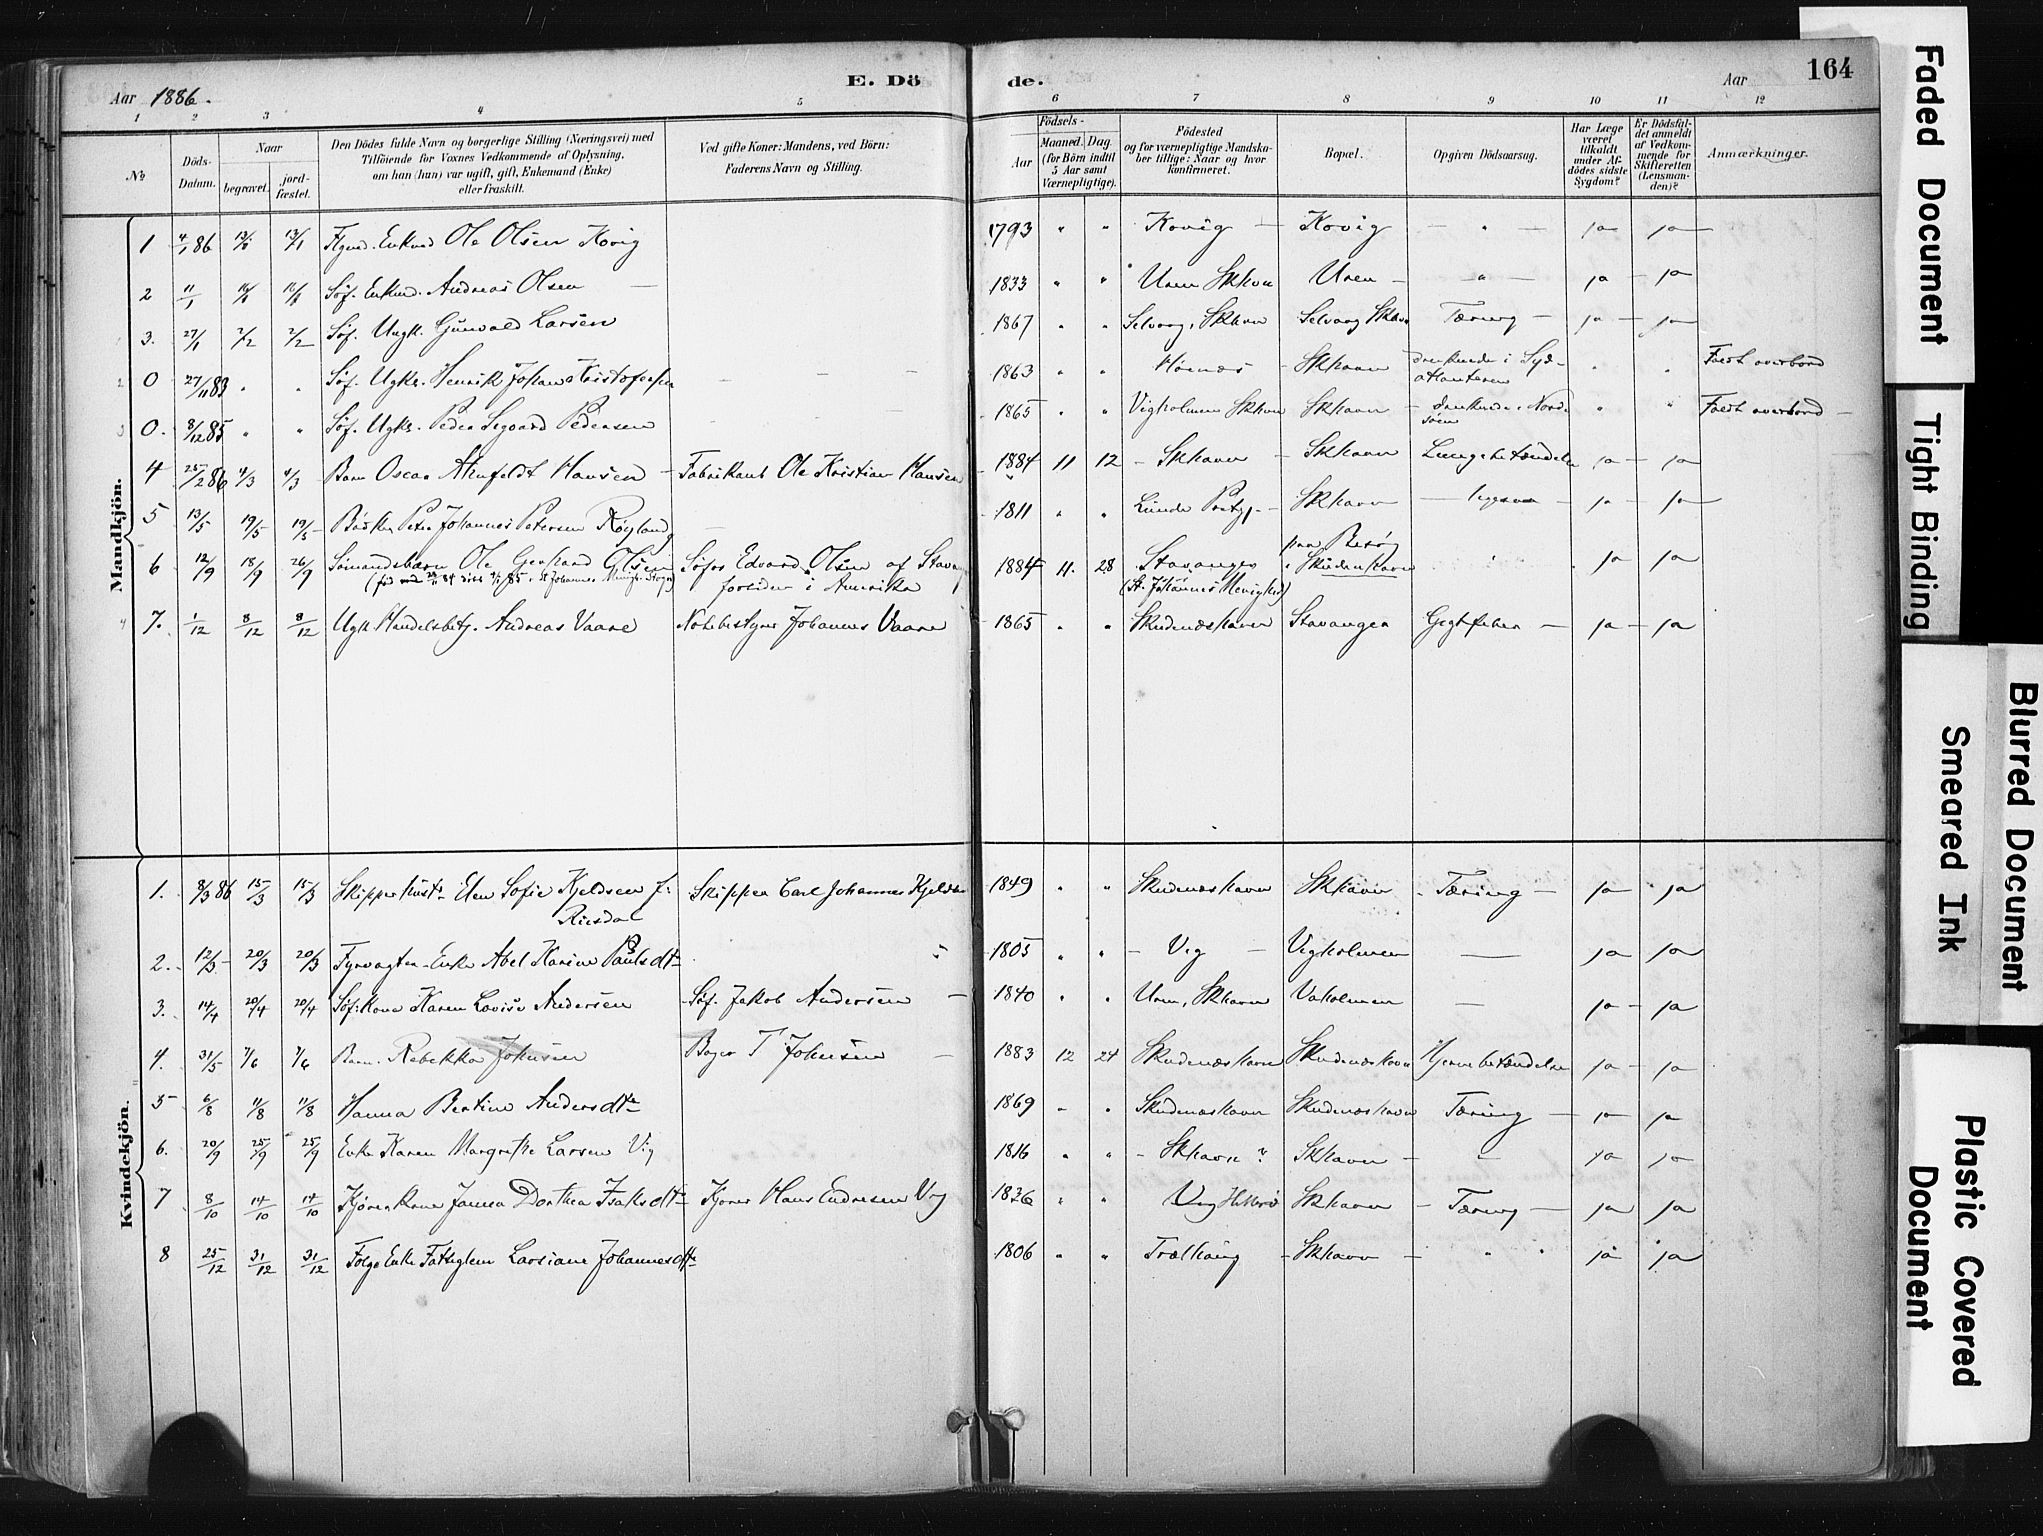 Aar 1886.
E. Dö
de.
Aar
164
1 2 3 4 5 6 7 8 9 10 11 12
No
Döds-Datum.
Naar
begravet.
jord-fæstet.
Den Dödes fulde Navn og borgerlige Stilling (Næringsvei) med
Tilföiende for Voxnes Vedkommende af Oplysning,
om han (hun) var ugift, gift, Enkemand (Enke)
eller fraskilt.
Ved gifte Koner: Mandens, ved Börn:
Faderens Navn og Stilling.
Födsels-
Aar
Maaned. Dag.
(for Börn indtil
5 Aar samt
Værnepligtige).
Födested
og for værnepligtige Mandska-
ber tillige: Naar og hvor
konfirmeret.
Bopæl.
Opgiven Dödsaarsag.
Har Læge
været
tilkaldt
under Af-
dödes sidste
Sygdom?
Er Dödsfal-
det anmeldt
af Vedkom-
mende for
Skifteretten
(Lensman-
den)?
Anmærkninger.
Mandkjön.
1 4/1 86 13/1 Enkmd Ole Olsen Kovig 1793 " " Kovig - Kovig - " - ja - ja
2 11/1 Søf. Enkmd. Andreas Olsen 1833 " " Uren Skhvn Uren - " - ja - ja
3. 27/1 2/2 2/2 Søf. Ungk. Gunvald Larsen 1867 " " Selvaag, Skhavn Selvaag Skhavn Tæring - ja - ja
0 27/11 83 " " Søf. Ugkr. Henrik Johan Kristofersen 1863 " " Skhavn druknede i Syd-
atlanteren " " Faldt overbord
0. 8/12 85 " " Søf. Ugkr. Peder Segvard Pedersen 1865 " " Vigholmen Skhvn Skhavn - druknede i Nord-
søen " " Faldt overbord -
4 25/2 86 4/3 4/3 Barn Oscar Alenfeldt Hansen - Fabrikant Ole Kristian Hansen 1884 11 12 - Skhavn - Skhavn Lungebetændelse ja - ja
5 13/5 19/5 19/5 Peter Johannes Petersen Røyland 1811 " " Lunde - Skhavn - ja - ja
6 12/9 18/9 26/9 Sømandsbarn Ole Gerhard Olsen Edvard Olsen af Stavanger
fortiden i Amerika 1884 11. 28 Stavanger
(St. Johannes Menighed) paa Besøg
i Skudenhavn ja ja
7. 1/12 8/12 8/12 Ugk Handelsbetj. Andreas Vaare Notebestyrer Johannes Vaare 1865 " " Skudenæshavn Stavanger Gigtfeber - ja - ja
Kvindekjön.
1. 8/3 86 15/3 15/3 Skipperhustr Elen Sofie Kjeldsen f.
Riisdal Skipper Carl Johannes Kjeldsen 1849 " " Skudenæshavn Skhavn - Tæring - ja ja
2. 12/3 20/3 20/3 Fyrvagter-Enke Abel Karine Paulsdtr 1805 " " - Vig - Vigholmen - ja - ja
3. 14/4 20/4 20/4 Søf:kone Karen Lovise Andersen Søf. Jakob Andersen - 1840 " " Uren, Skhavn Vaholmen - ja - ja
4. 31/5 7/6 7/6 Barn. Rebekka Johnsen Bager T Johnsen - 1883 12 24 Skudenæshavn Skudenæshavn Hjernebetændelse ja - ja
5 6/8 11/8 11/8 Hanna Bertine Andersdtr 1869 " " Skudenæshavn Skudenæshavn Tæring - ja - ja
6. 20/9 25/9 25/9 Enke Karen Margrethe Larsen Vig 1816 " " - Skhavn? Skhavn - - ja ja
7 8/10 14/10 14/10 Janna Dorthea Isaksdtr Hans Endresen Vig 1836 " " Vig Skhavn - Tæring - ja - ja
8 25/12 31/12 31/12 Enke Larsiane Johannesdtr 1806 " " - Skhavn - " " ja ja
Faded Document
Tight Binding
Blurred Document
Smeared Ink
Plastic Covered
Document